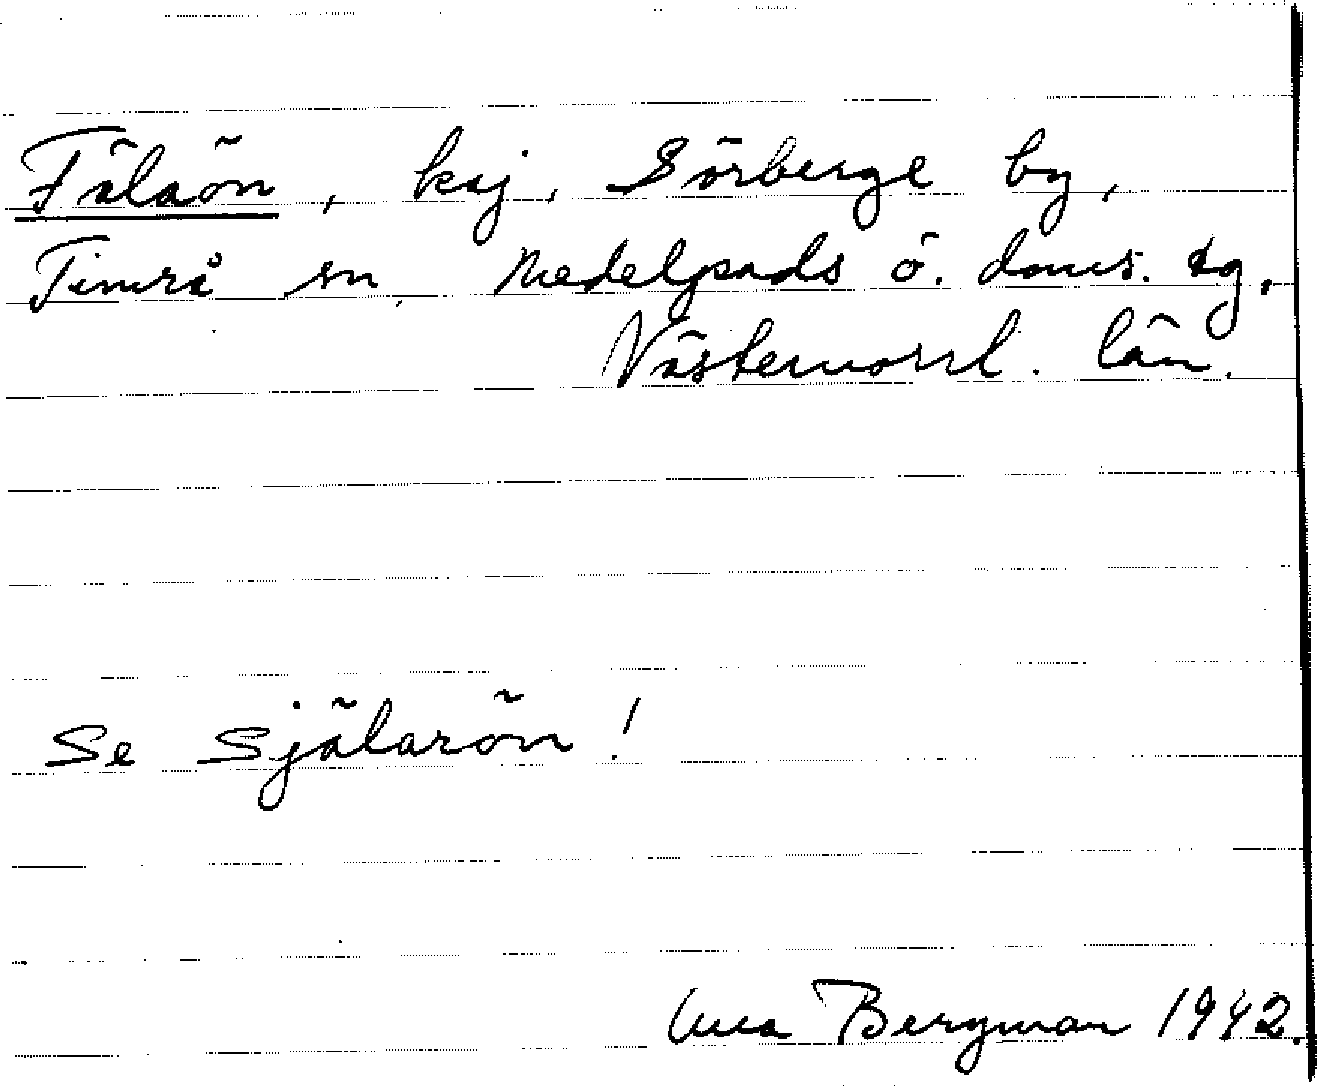 Fälaön, kaj, Sörberge by,
Timrå sn, Medelpads ö. doms. tg.
Västernorrl. län.
Se Själarön!
Bergman 1942.